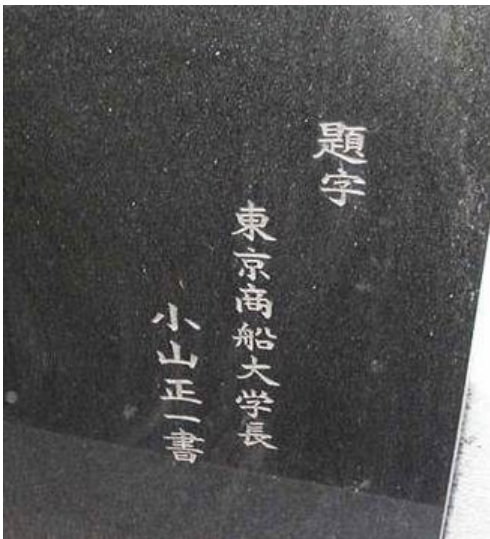 題字
東京商船大学長
小山正一書